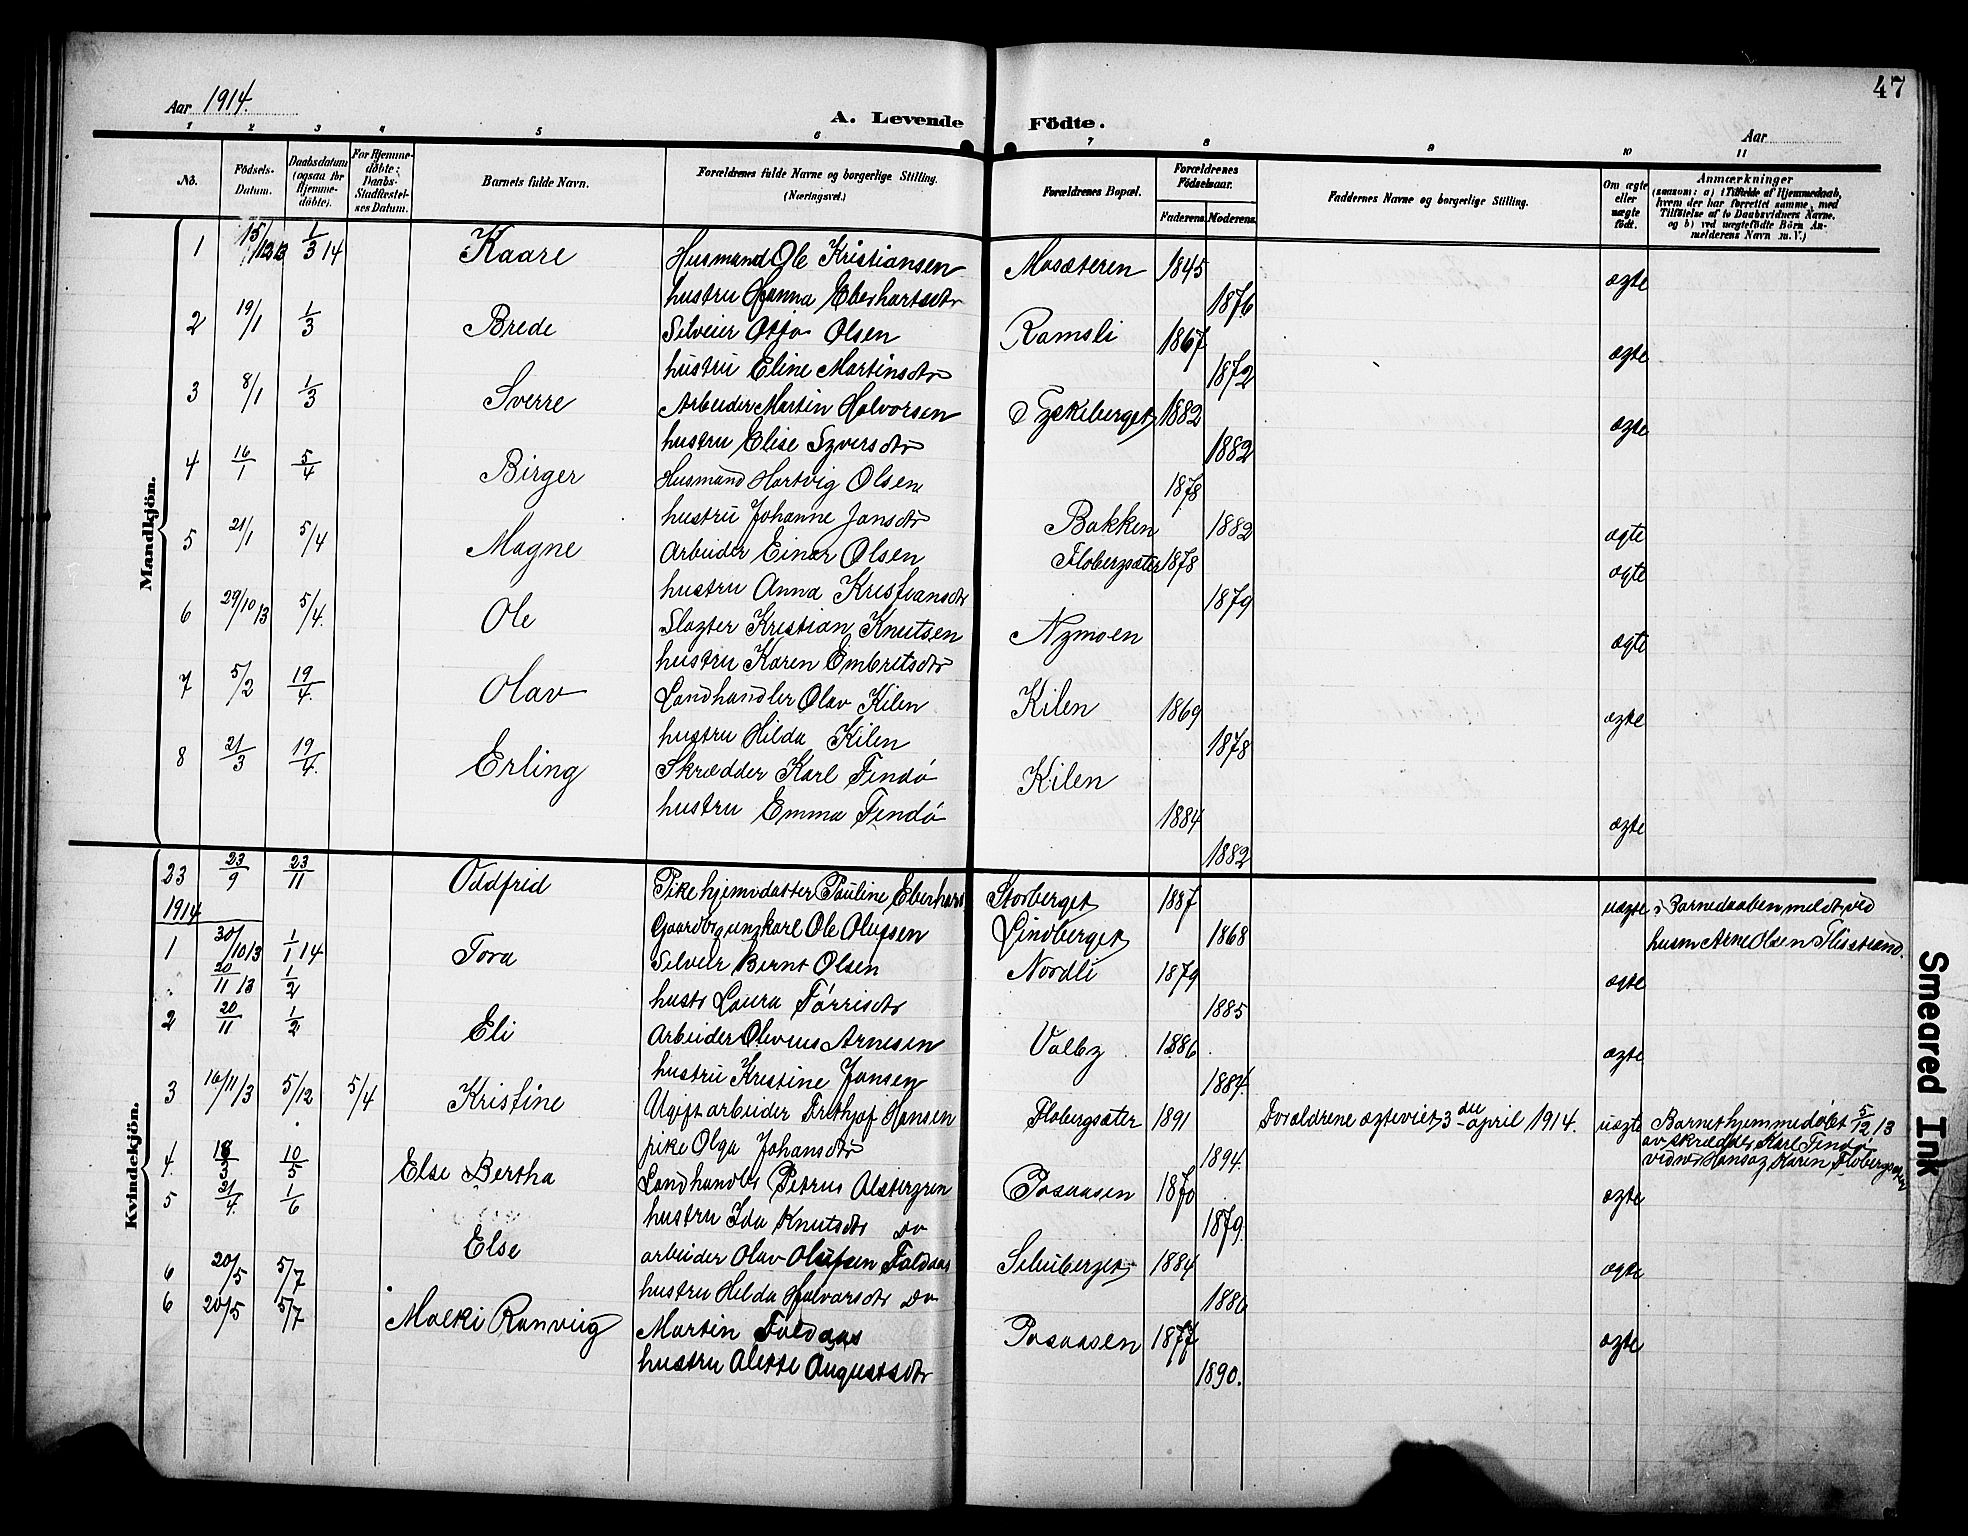 47
Aar 1914.
A. Levende Födte.
Aar
1 2 3 4 5 6 7 8 9 10 11
No. Födsels-Datum. Daabsdatum (ogsaa for Hjemmedöbte). For Hjemmedöbte: Daabs-Stadfæstelses Datum. Barnets fulde Navn. Forældrenes fulde Navne og borgerlige Stilling. (Næringsvei.) Forældrenes Bopæl. Forældrenes Födselsaar. Faderens. Moderens. Faddernes Navne og borgerlige Stilling. Om ægte eller uægte födt. Anmærkninger (saasom: a) i Tilfælde af Hjemmedaab, hvem der har forrettet samme, med Tilföielse af to Daabsvidners Navne. og b) ved uægtefödte Börn Anmelderens Navn m. V.)
Mandkjön.
1 15/12 13 1/3 14 Kaare Husmand Ole Kristiansen Mosæteren 1845 ægte
hustru Hanna Eberhartsdtr 1876
2 19/1 1/3 Brede Selveier Otto Olsen Ramsli 1867 ægte
hustru Eline Martinsdtr 1872
3 8/1 1/3 Sverre Arbeider Martin Halvorsen Tyskeberget 1882 ægte
hustru Elise Syversdtr 1882
4 16/1 5/4 Birger Husmand Hartvig Olsen 1878
hustru Johanne Jansdtr Bakken 1882 ægte
5 21/1 5/4 Magne Arbeider Einar Olsen Flobergsæter 1878 ægte
hustru Anna Kristiansdtr 1879
6 29/10 13 5/4. Ole Slagter Kristian Knutsen Nymoen ægte
hustru Karen Embretsdtr
7 5/2 19/4. Olav Landhandler Olav Kilen Kilen 1869 ægte
hustru Hilda Kilen 1878
8 21/3 19/4. Erling Skrædder Karl Tindö Kilen
hustru Emma Tindö 1884 ægte
1882
Kvindekjön.
23 23/9 23/11 Oddfrid Pike hjemvdatter Pauline Eberhard Storberget 1887 uægte Barnedaaben meldt ved
1914 Gaardbr ungkarl Ole Olufsen Lindberget 1868 husm Arne Olsen
1 30/10 13 1/1 14 Tora Selveier Bernt Olsen Nordli 1879 ægte
20/11 13 1/2 hustr Laura Törrisdtr 1885
2 20/11 1/2 Eli Arbeider Olevius Arnesen Valby 1886 ægte
hustru Kristine Jansen 1884.
3 16/11 13 5/12 5/4 Kristine Ugift arbeider Frithjof Hansen Flobergsæter 1891 Foraldrene ægteviet 3 die april 1914. uægte Barnet hjemmedöbt 5/12 13
pike Olga Johansdtr 1894. av skrædder Karl Tindö
vidner Hans og Karen Flobergsæter
4. 18/3 10/5 Else Bertha Landhandler Petrus Alstergren Posaasen 1870 ægte
5 21/4. 1/6 hustru Ida Knutsdtr do 1879.
Else arbeider Olav Olufsen Foldaas Seluberget 1884 ægte
6 20/5 5/7 hustru Hilda Halvorsdtr do 1886
6 20/5 5/7 Malki Ranveig Martin Foldaas Posaasen 1877 ægte
hustru Alette Augustsdtr 1890.
Smeared Ink